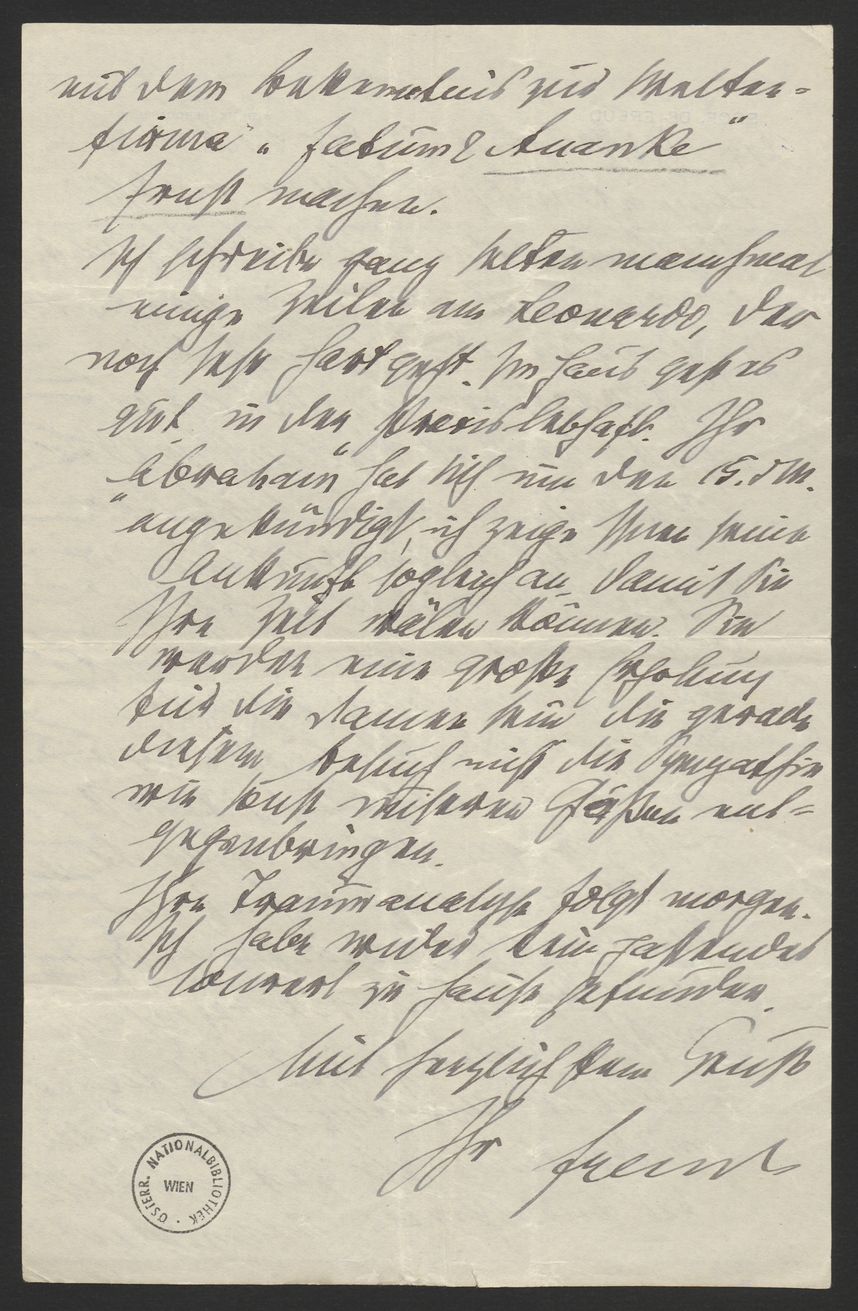 mit dem Bekenntnis zur Welten-
firma „Fatum & Ananke“
Ernst machen.
Ich schreibe ganz selten manchmal
einige Zeilen am Leonardo, der
noch sehr hart geht. Im Haus geht es
gut, in der Praxis lebhaft. Ihr
„Abraham“ hat sich um den 15. d M.
angekündigt, ich zeige Ihnen seine
Ankunft sogleich an, damit Sie
Ihre Zeit wälen können. Sie
werden eine große Erholung
für die Damen sein die gerade
diesem Besuch nicht die Sympathie
wie sonst unseren Gästen ent-
gegenbringen.
Ihre Traumanalyse folgt morgen.
Ich habe wieder kein passendes
Couvert zu Hause gefunden.
Mit herzlichstem Gruß
Ihr Freud
ÖSTERR. NATIONALBIBLIOTHEK
WIEN